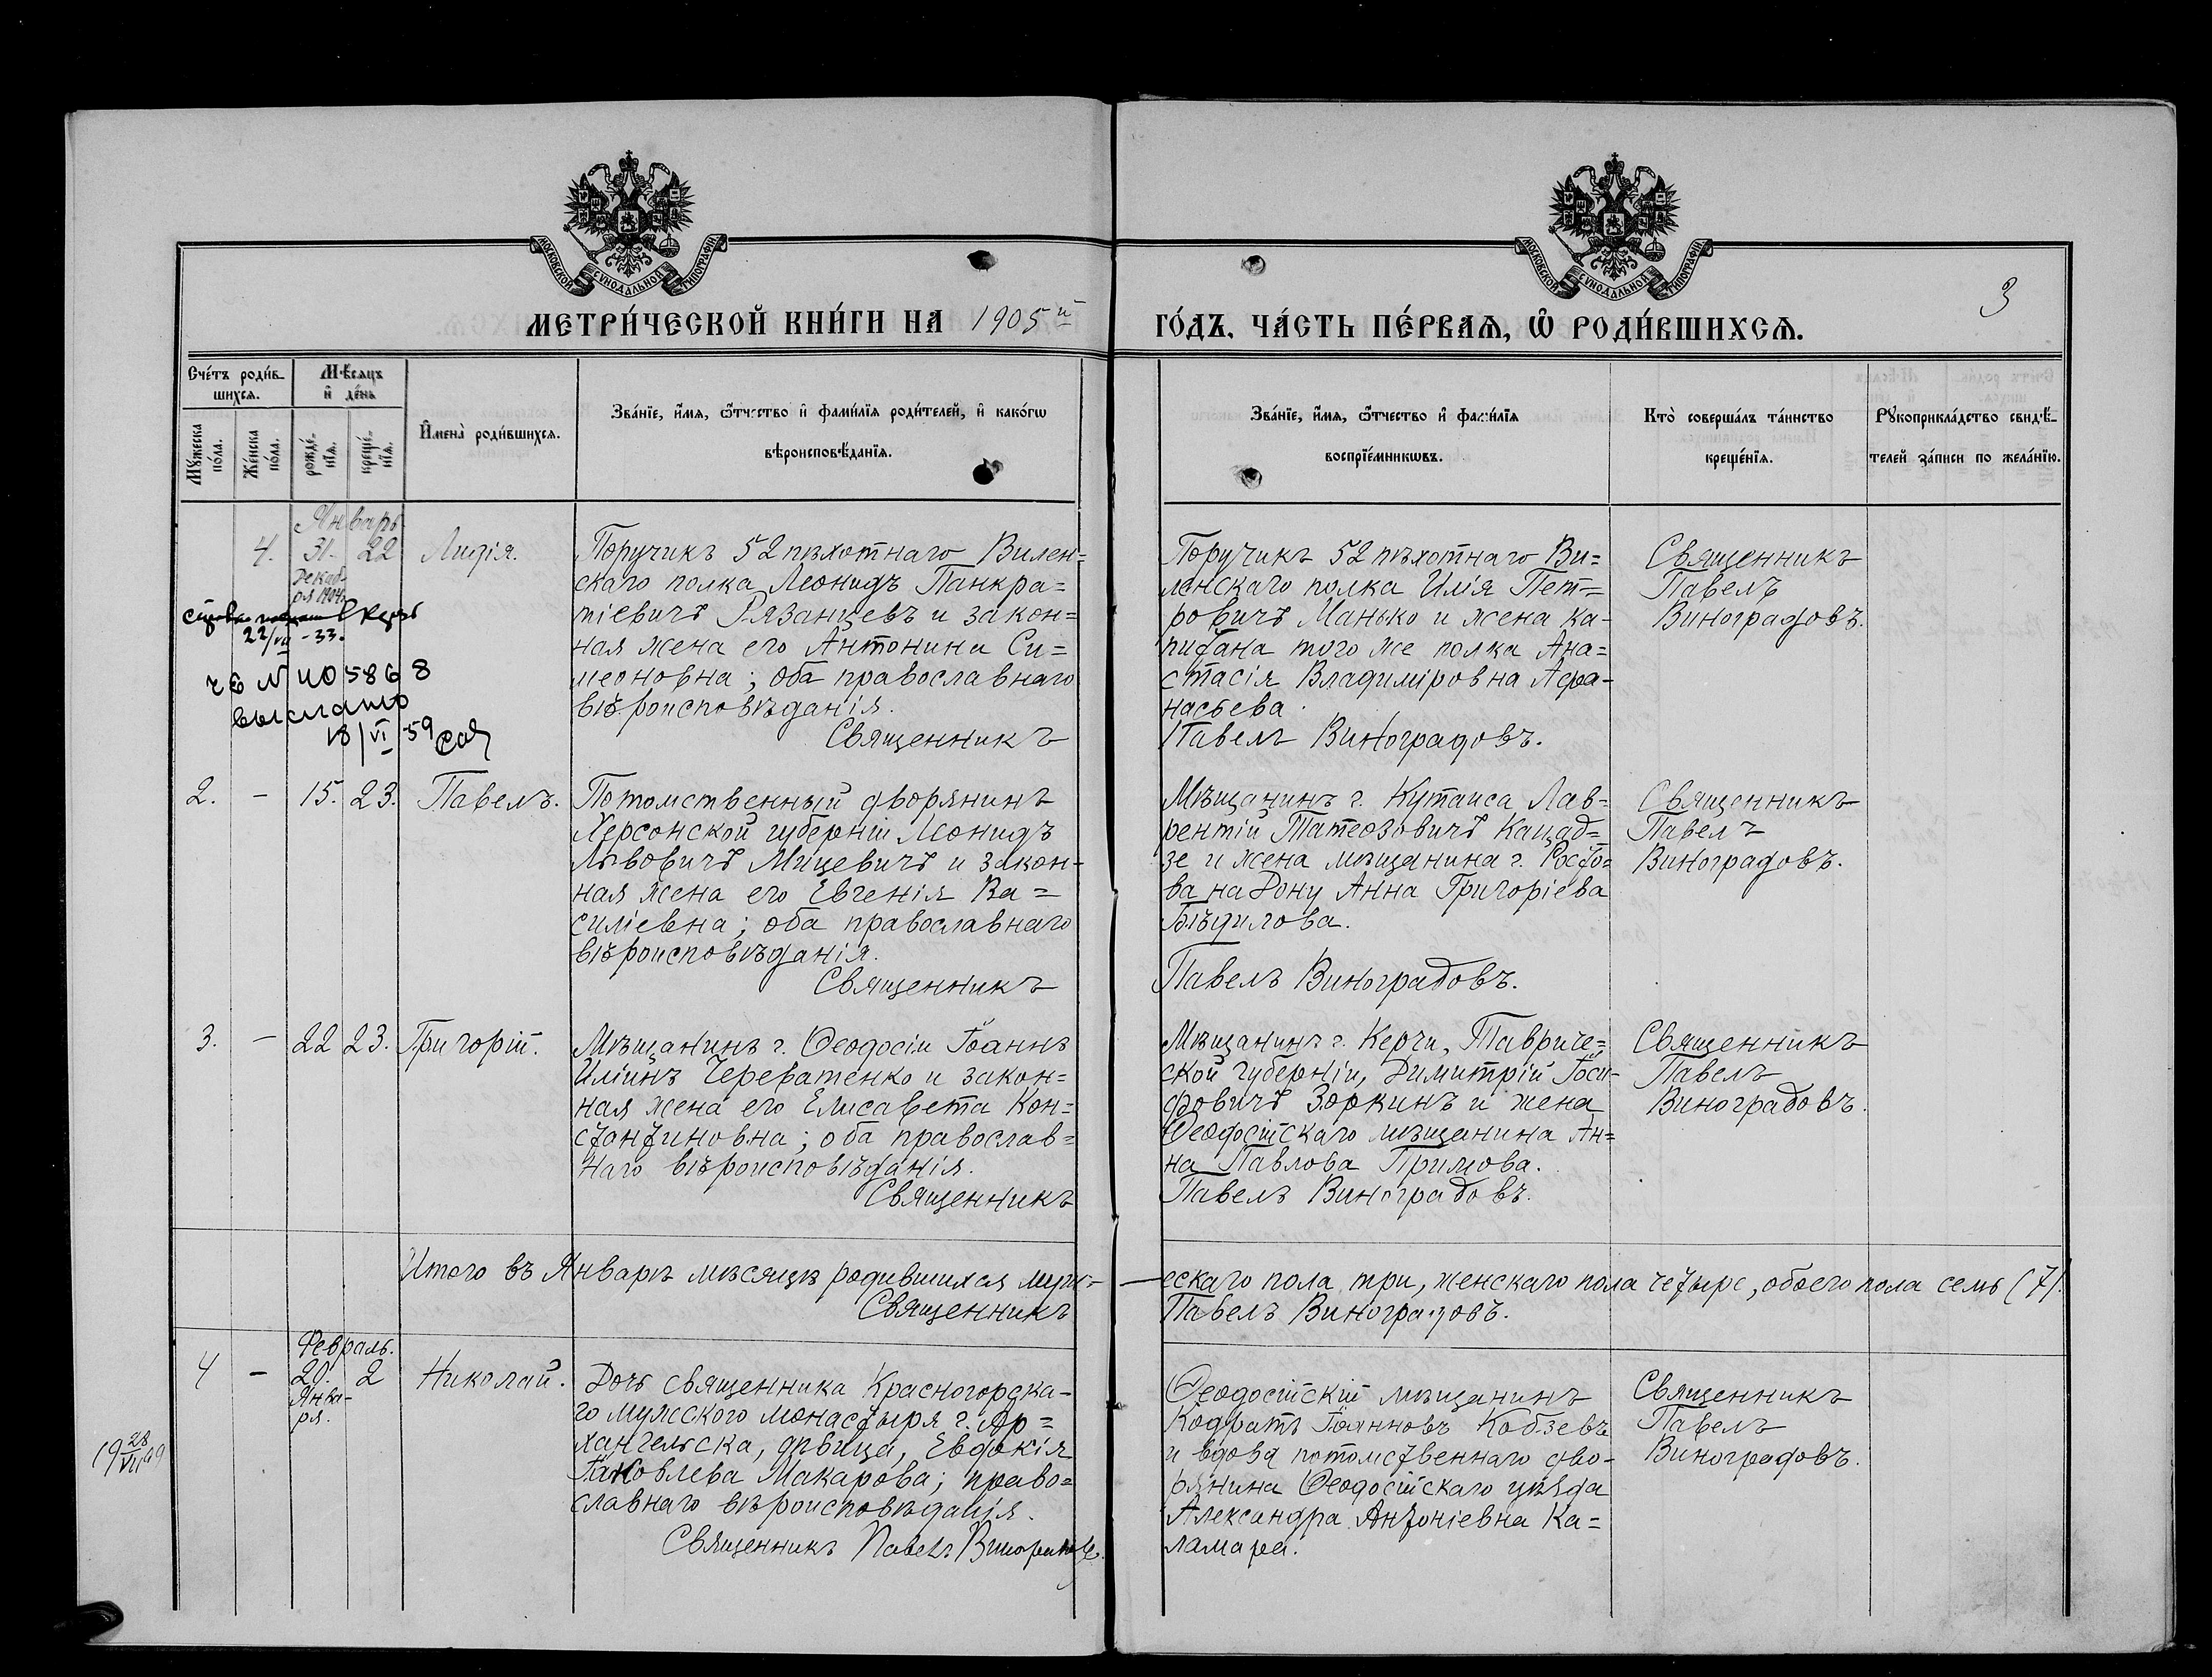 МОСКОВСКОЙ СѴНОДАЛЬНОЙ ТИПОГРАФІИ.
МОСКОВСКОЙ СѴНОДАЛЬНОЙ ТИПОГРАФІИ.
3
МЕТРИ́ЧЕСКОЙ КНИ́ГИ НА 1905й
ГО́ДЪ, ЧА́СТЬ ПЕ́РВАѦ, Ѡ҆ РОДИ́ВШИХСѦ.
Сче́тъ роди́в-
шихсѧ.
Мꙋ́жеска по́ла.
Же́нска по́ла.
Мѣ́сѧцъ
и҆ де́нь
рожде́-
нїѧ.
креще́-
нїѧ.
И҆мена̀ роди́вшихсѧ.
Зва́нїе, и҆́мѧ, ѻ҆́тчество и҆ фами́лїѧ роди́телей, и҆ како́гѡ
вѣроисповѣ́данїѧ.
Зва́нїе, и҆́мѧ, ѻ҆́тчество и҆ фами́лїѧ
воспрїе́мникѡвъ.
Кто̀ соверша́лъ та́инство
креще́нїѧ.
Рꙋкоприкла́дство свидѣ́-
телей за́писи по жела́нїю.
Январь
4. 31. 22 Лидія.
Декаб-
ря 1904
22/VII -33.
ЧЮ № 405868
выслано
18/VI 59
Поручикъ 52 пѣхотнаго Вилен-
скаго полка Леонидъ Панкра-
тіевичъ Рязанцевъ и закон-
ная жена его Антонина Си-
меоновна; оба православнаго
вѣроисповѣданія.
Священникъ
Поручикъ 52 пѣхотнаго Ви-
ленскаго полка Илія Пет-
ровичъ Манько и жена ка-
питана того же полка Ана-
стасія Владиміровна Афа-
насьева.
Павелъ Виноградовъ.
Священникъ
Павелъ
Виноградовъ.
2. - 15. 23. Павелъ.
Потомственный дворянинъ
Херсонской губерніи Леонидъ
Львовичъ Мицевичъ и закон-
ная жена его Евгенія Ва-
силіевна; оба православнаго
вѣроисповѣданія.
Священникъ
Мѣщанинъ г. Кутаиса Лав-
рентій Татеозовичъ Кацад-
зе и жена мѣщанина г. Росто-
ва на Дону Анна Григоріева
Бѣдилова.
Павелъ Виноградовъ.
Священникъ
Павелъ
Виноградовъ.
3. - 22 23. Григорій.
Мѣщанинъ г. Ѳеодосіи Іоаннъ
Иліинъ Череватенко и закон-
ная жена его Елисавета Кон-
стантиновна; оба православ-
наго вѣроисповѣданія.
Священникъ
Мѣщанинъ г. Керчи, Тавриче-
ской губерніи, Димитрій Іоси-
фовичъ Зоркинъ и жена
Ѳеодосійскаго мѣщанина Ан-
на Павлова Примова.
Павелъ Виноградовъ.
Священникъ
Павелъ
Виноградовъ.
Итого въ Январѣ мѣсяцѣ родившихся муж-
ескаго пола три, женскаго пола четыре, обоего пола семь (7).
Священникъ
Павелъ Виноградовъ.
Февраль.
4 - 20. 2 Николай.
Янва-
ря.
Дочь священника Красногорска-
го мужского монастыря г. Ар-
хангельска, дѣвица, Евдокія
Іаковлева Макарова; право-
славнаго вѣроисповѣданія.
Священникъ Павелъ Виноградовъ.
Ѳеодосійскій мѣщанинъ
Кодратъ Іоанновъ Кобзевъ
и вдова потомственнаго дво-
рянина Ѳеодосійскаго уѣзда
Александра Антоніевна Ка-
ламара.
Священникъ
Павелъ
Виноградовъ.
19 28/VII 49